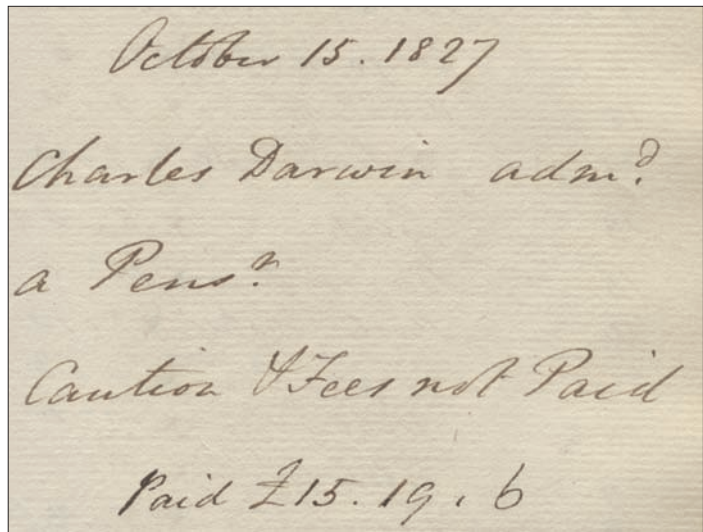 October 15. 1827
Charles Darwin adm.ᵈ
a Pens.ʳ
Caution & Fees not Paid
Paid £15. 19. 6